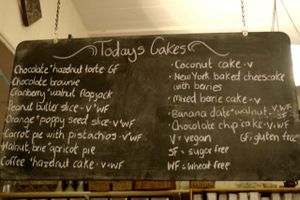 Todays Cakes
Chocolate hazelnut torte GF
Chocolate brownie
Cranberry walnut flapjack
Peanut butter slice - V WF
Orange poppy seed slice - V
Carrot pie with pistachios - V WF
Walnut, brie apricot pie
Coffee hazelnut cake - V WF
Coconut cake - V
New York baked cheesecake
with berries
Mixed berrie cake - V
Banana date walnut - V SF
Chocolate chip cake - V
V = vegan GF = gluten free
SF = sugar free
WF = wheat free